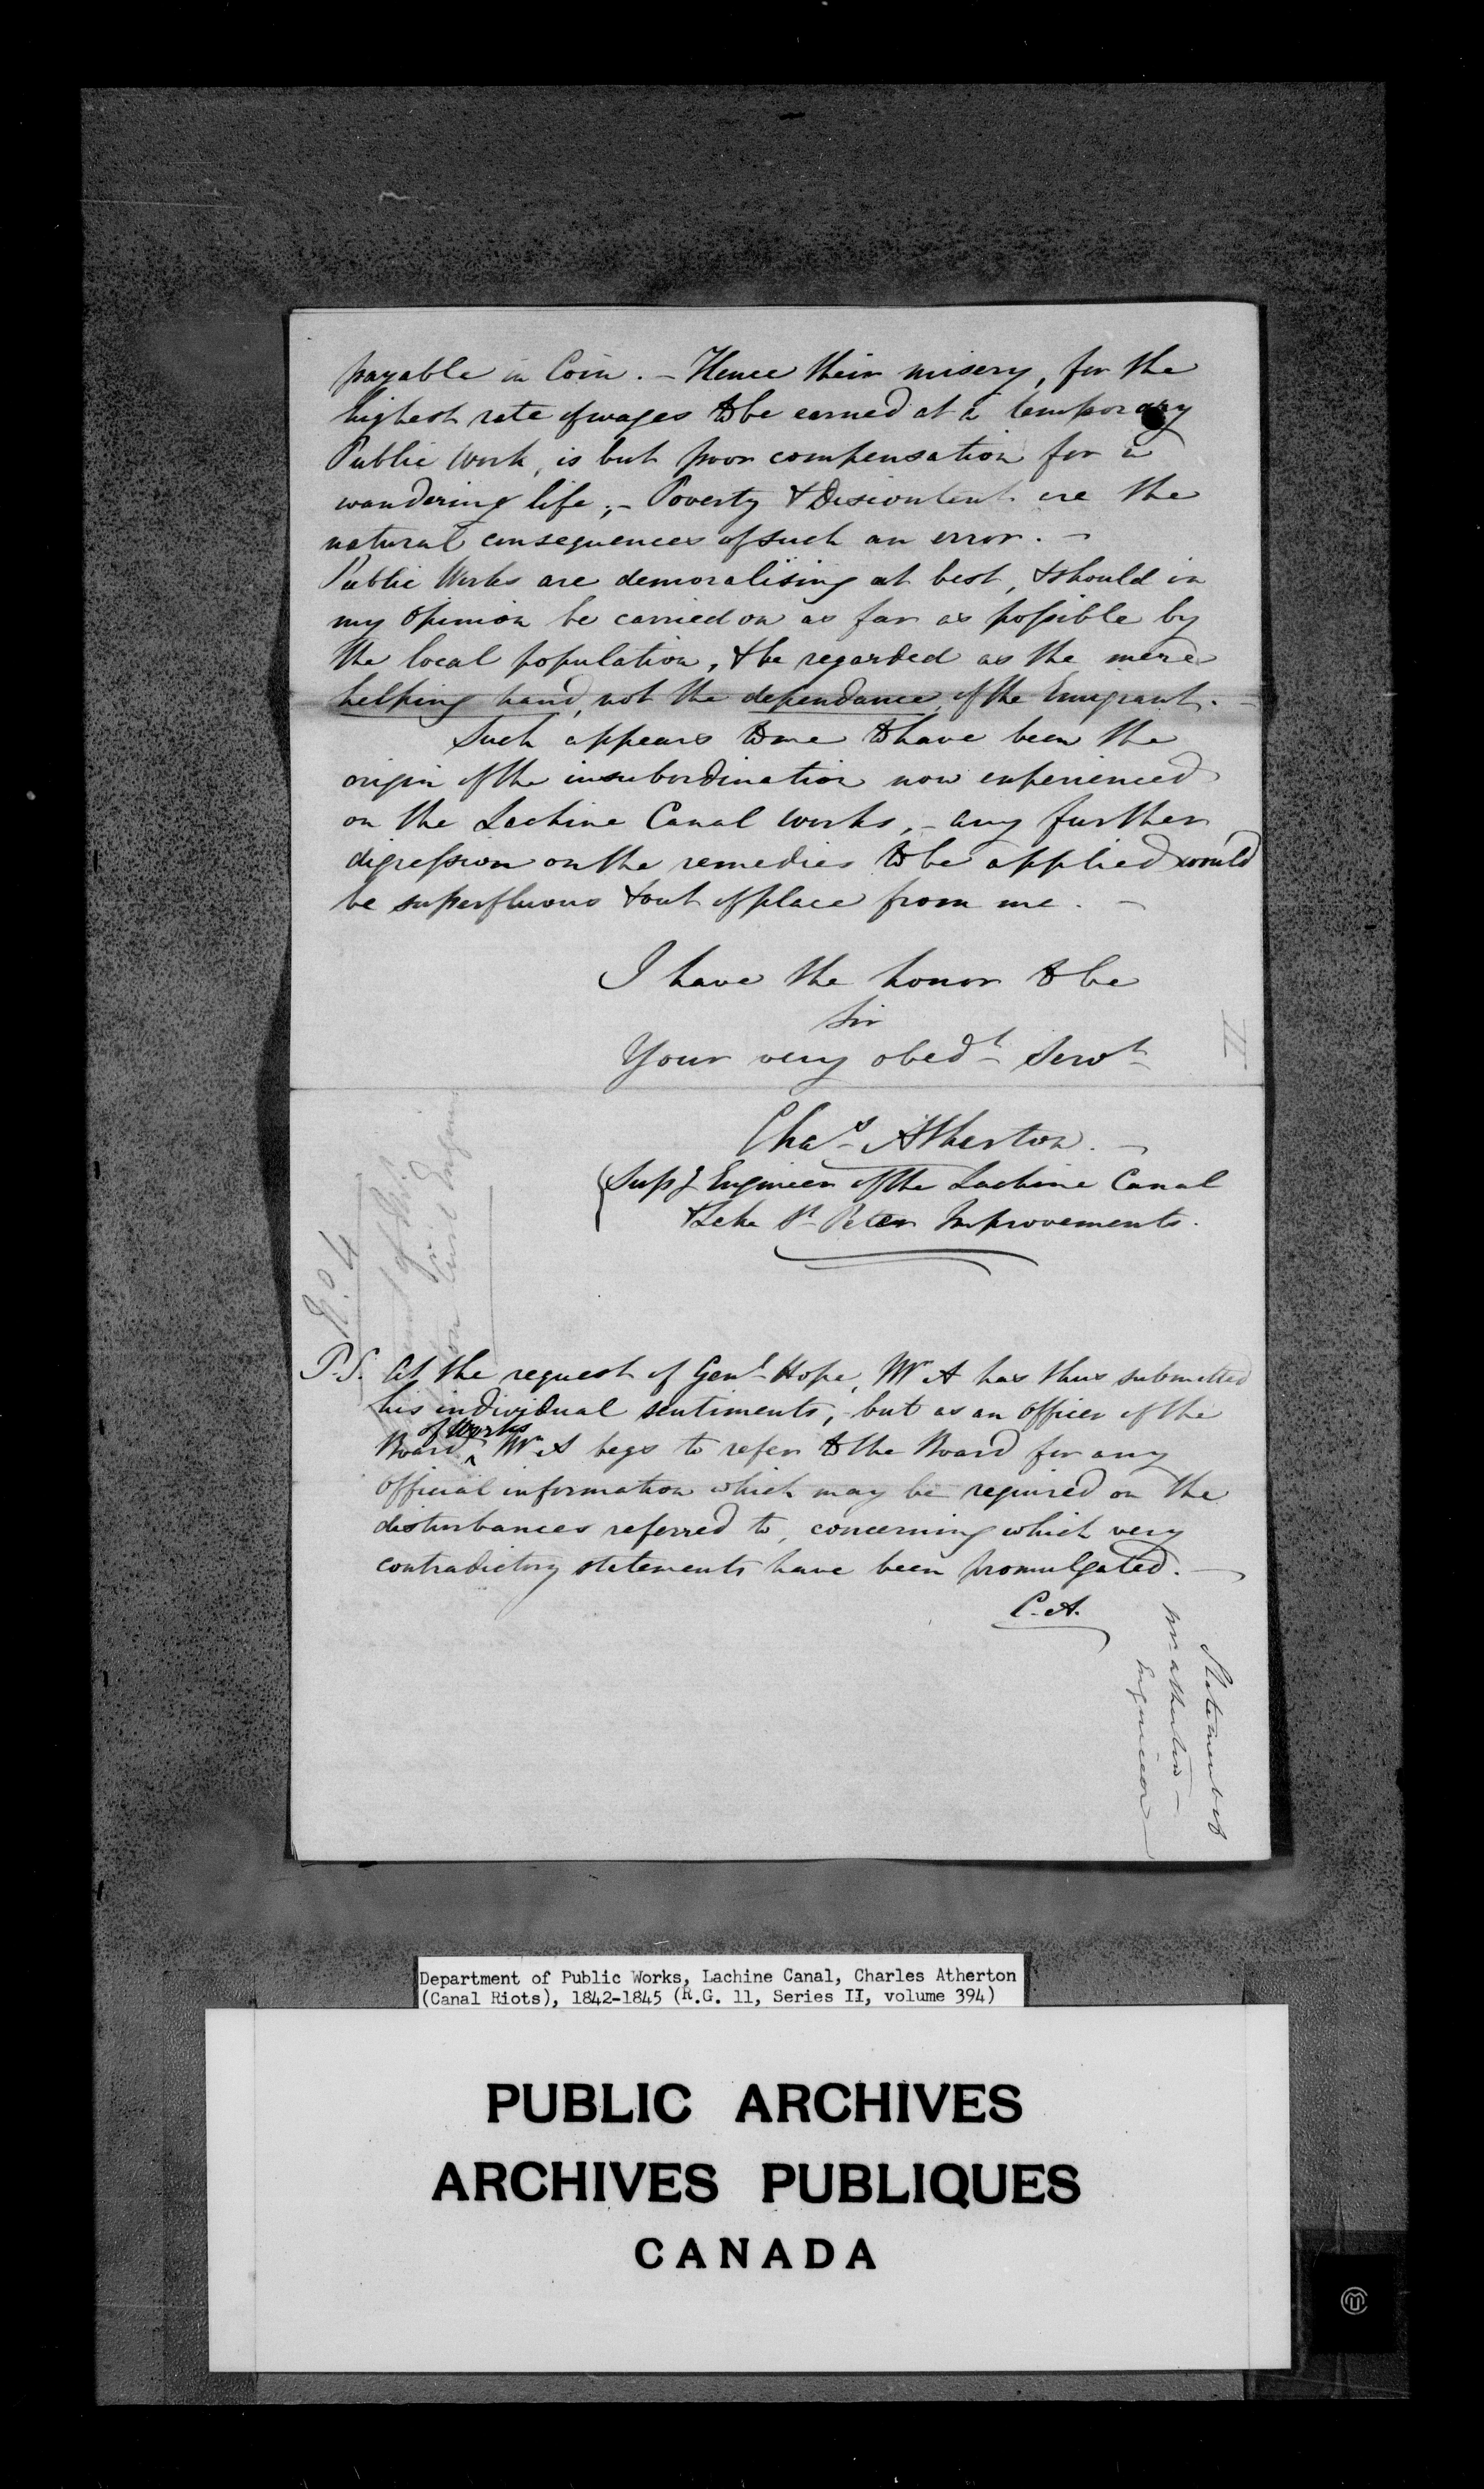 payable in Coin. – Hence their misery, for the
highest rate of wages to be earned at a temporary
Public Work, is but poor compensation for a
wandering life; – Poverty & Discontent are the
natural consequences of such an error. –
Public Works are demoralising at best, & should in
my opinion be carried on as far as possible by
the local population, & be regarded as the mere
helping hand, not the dependance, of the Emigrant. –
Such appears to me to have been the
origin of the insubordination now experienced
on the Lachine Canal Works, – any further
digression on the remedies to be applied would
be superfluous & out of place from me. –
I have the honor to be
Sir
Your very obedt Servt
Chas Atherton. –
Supg Engineer of the Lachine Canal
& Lake St Peter Improvements.
No 4
Civil Engineer
P.S. At the request of Genl Hope, Mr A has thus submitted
his individual sentiments, – but as an Officer of the
Board of Works Mr A begs to refer to the Board for any
Official information which may be required on the
disturbances referred to, concerning which very
contradictory statements have been promulgated. –
C. A.
Statement of
Mr Atherton –
Engineer
Department of Public Works, Lachine Canal, Charles Atherton
(Canal Riots), 1842-1845 (R.G. 11, Series II, volume 394)
PUBLIC ARCHIVES
ARCHIVES PUBLIQUES
CANADA